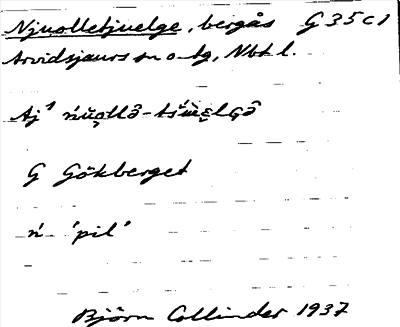 Njuolletjuelge, bergås G 35 c 1
Arvidsjaurs sn o. tg, Nbt l.
Aj¹ ńŭo̭llâ-tšu̇ɛlGâ
G Gökberget
ń 'pil'
Björn Collinder 1937